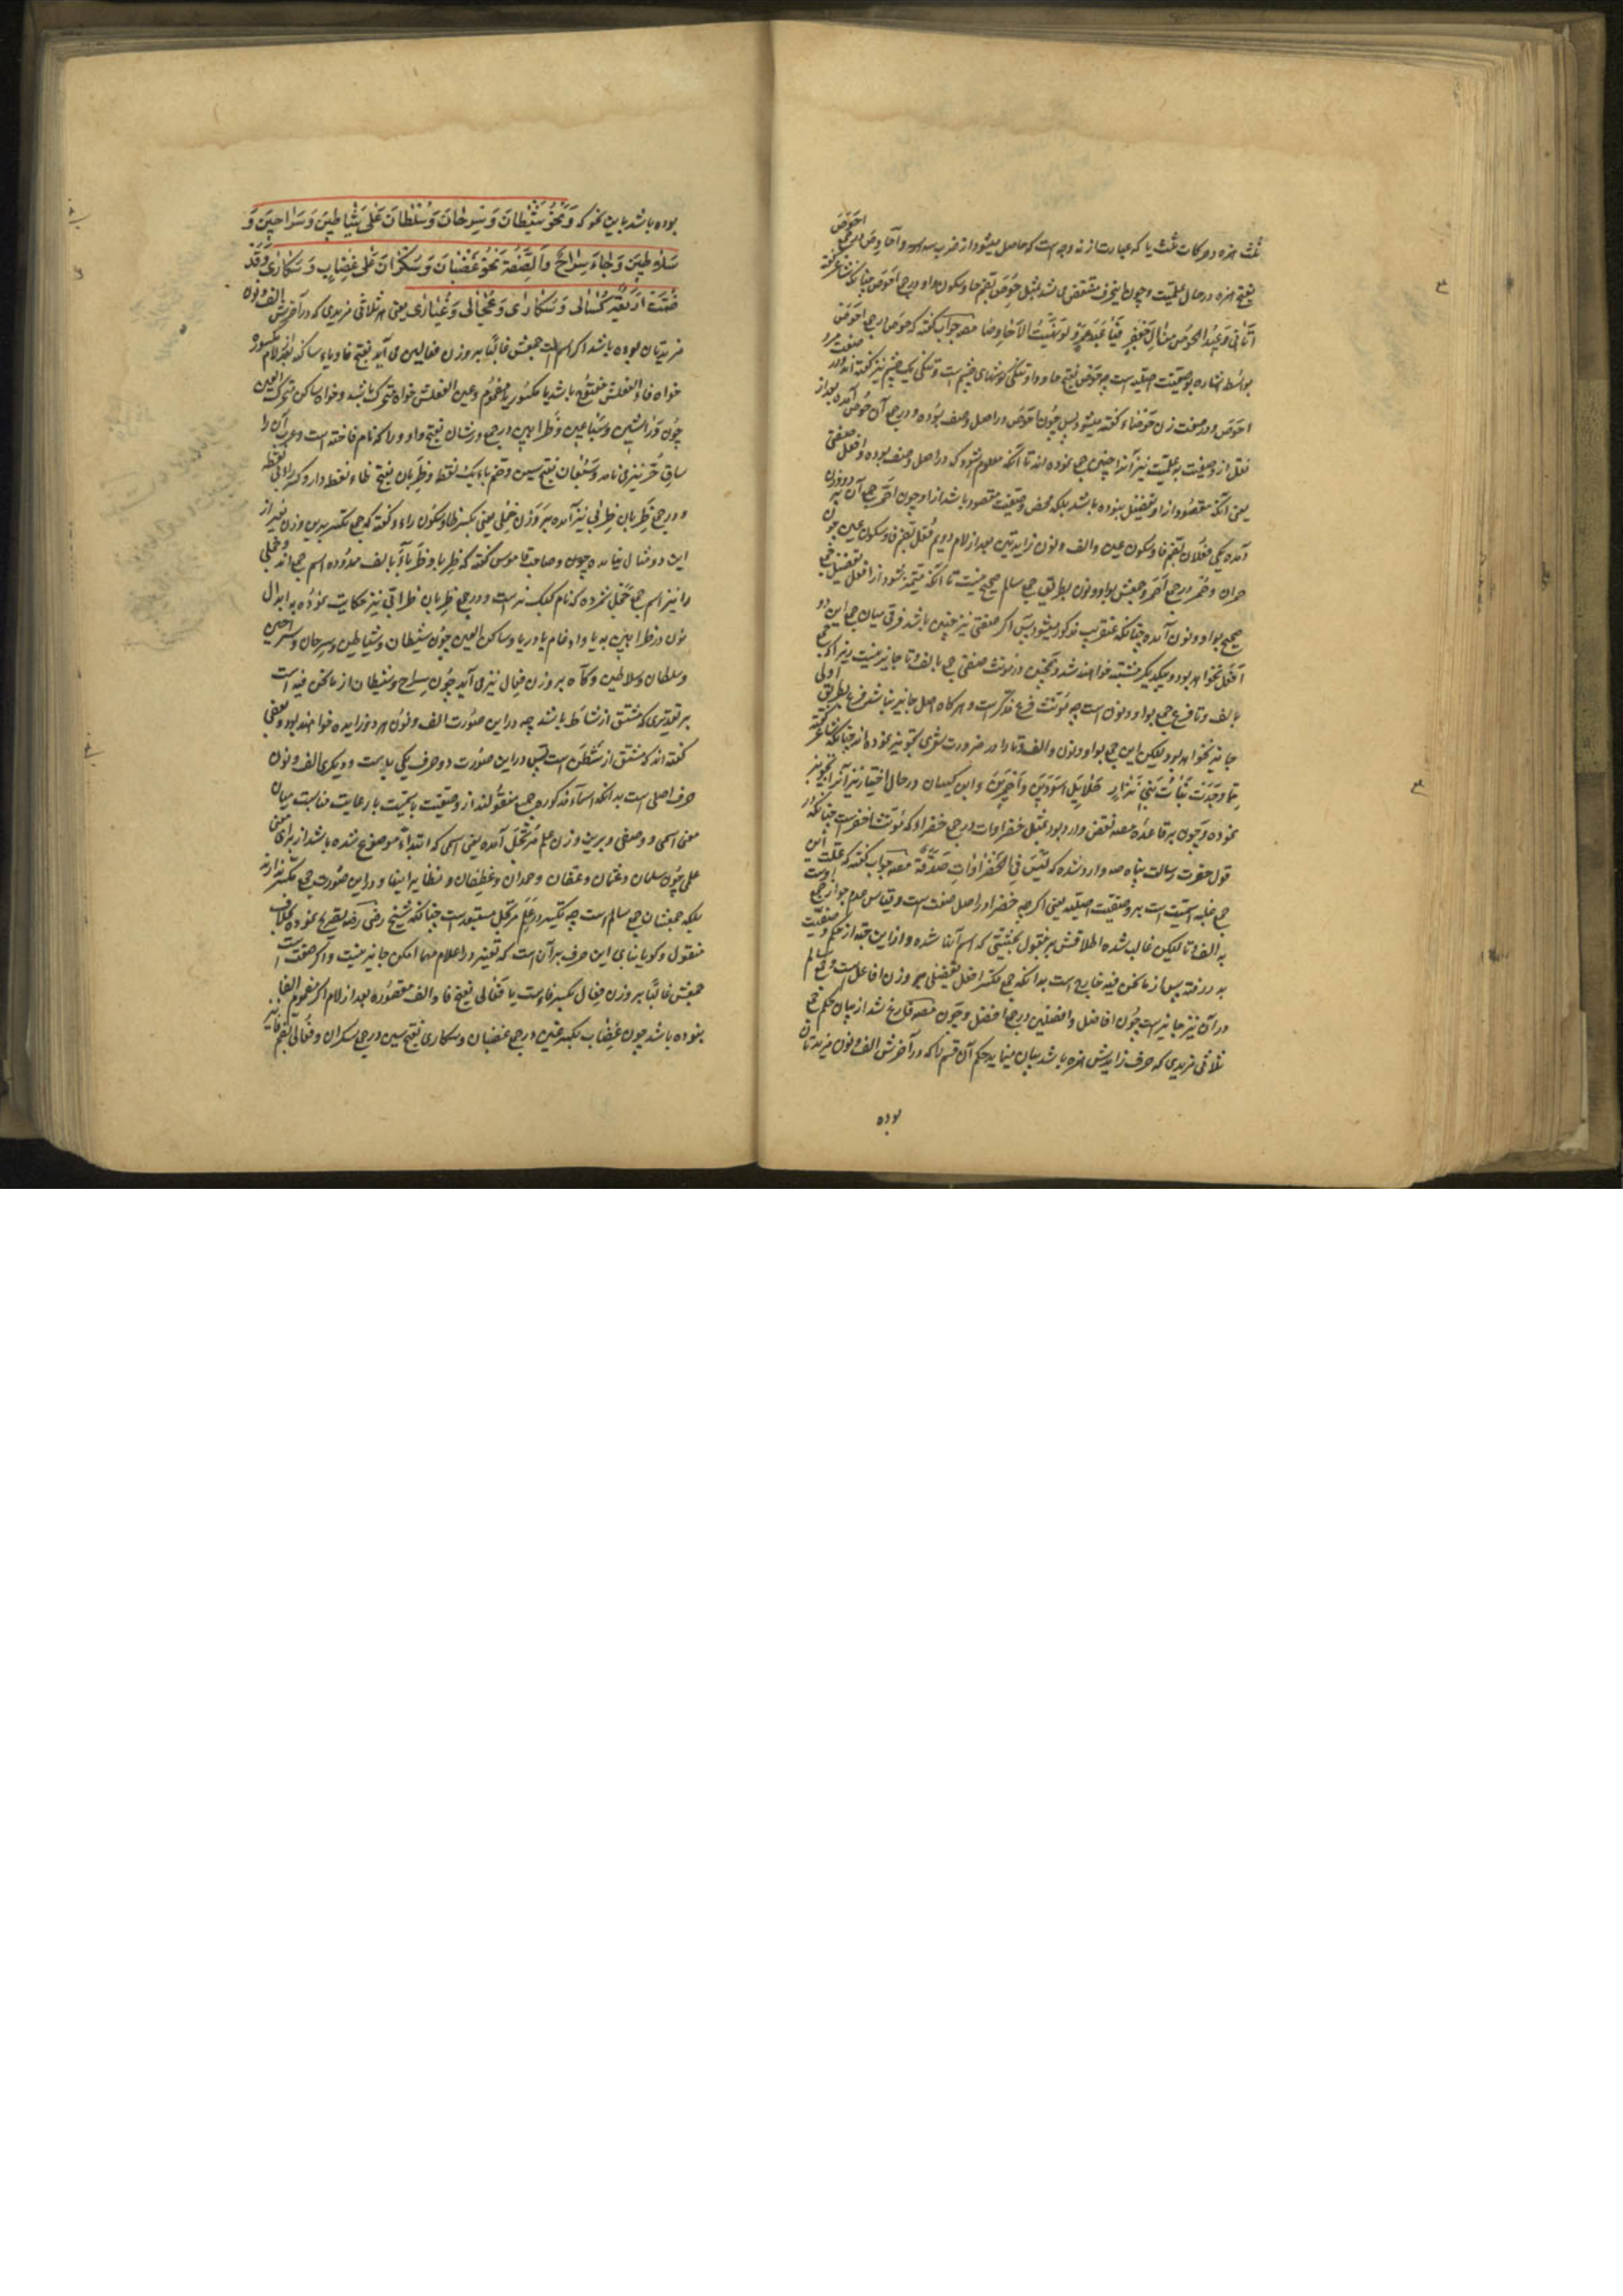 ثلث همزه و حرکات ثلث یا که عبارت از نه وجه است که حاصل میشود از ضرب سه در سه و
بفتح همزه در حال علمیت و چون این حرف منتقض می شد بمثل حُوص بضم حا و سکون واو در جمع احوص چنانکه شاعر گفته
احوص و در صفت زن حَوْصَاء گفته میشود پس چون احوص در اصل وصف بوده و در جمع آن حُوص آمده بعد از
نقل از وصفیت به علمیت نیز آنرا چنین جمع نموده اند تا آنکه معلوم شود که در اصل وصف بوده و افعل صفتی
یعنی آنکه مقصود از او تفضیل نبوده باشد بلکه محض وصفیت مقصود باشد از او چون احمر جمع آن بر دو وزن
آمده یکی فُعْلان بضم فا و سکون عین و الف و نون زایدتین بعد از لام دویم فُعْل بضم فا و سکون عین چون
حمران و حُمْر در جمع احمر و جمعش بواو و نون بطریق جمع سالم صحیح نیست تا آنکه متمیز شود از افعل تفضیل که جمع
صحیح بواو و نون آمده چنانکه عنقریب مذکور میشود پس اگر صفتی نیز چنین باشد فرق میان جمع این دو
افعل نخواهد بود و بیکدیگر مشتبه خواهند شد و همچنین در مونث صفتی جمع بالف و تا جایز نیست زیرا که جمع
بالف و تا فرع جمع بواو و نون است چه مونث فرع مذکر است و هر گاه اصل جایز نباشد فرع بطریق اولی
جایز نخواهد بود و لیکن این جمع بواو و نون و الف و تا را در ضرورت شعری تجویز نموده اند چنانکه شاعر گفته
فما وجدت نساء بنی نزار حلائل اسودین و احمرین و ابن کیسان در حال اختیار نیز آنرا تجویز
نموده و چون بر قاعده مصه نقض وارد بود بمثل خضراوات در جمع خضراء که مونث اخضر است چنانکه در
قول حضرت رسالت پناه صه وارد شده که لیس فی الخضراوات صدقة مصه جواب گفته که علت این
جمع غلبه اسمیت است بر وصفیت اصلیه یعنی اگر چه خضراء در اصل صفت است و قیاس عدم جواز جمع اوست
به الف و تا لیکن غالب شده اطلاقش بر بقول بحیثیتی که اسم آنها شده و از این جهة از حکم وصفیت
بدر رفته پس از ما نحن فیه خارج است بدانکه جمع مکسر افعل تفضیلی بر وزن افاعل است و جمع سالم
در آن نیز جایز است چون افاضل و افضلین در جمع افضل و چون مصه فارغ شد از بیان حکم جمع
ثلاثی مزیدی که حرف زایدش همزه باشد بیان مینماید حکم آن قسم را که در آخرش الف و نون مزیدتان
بوده
بوده باشد باین نحو که وَنَحْوُ شَیْطَان وَسِرْحَان وَسُلْطَان عَلَی شَیَاطِین وَسَرَاحِین وَ
سَلَاطِین وَجَاءَ سِرَاح وَالصِّفَة نَحْو غَضْبَان وَسَکْرَان عَلَی غِضَاب وَسَکَارَی وَقَدْ
ضُمَّت اَرْبَعَة کُسَالَی وَسُکَارَی وَعُجَالَی وَغُیَارَی یعنی هر ثلاثی مزیدی که در آخرش الف و نون
مزیدتان بوده باشد اگر اسم است جمعش غالبًا بر وزن فعالین می آید بفتح فا و یاء ساکنه بعد از لام مکسوره
خواه فاء الفعلش مفتوح باشد یا مکسور یا مضموم و عین الفعلش خواه متحرک باشد و خواه ساکن متحرک العین
چون وَرَاشین و سَبَاعین و ظَرَابین در جمع ورشان بفتح واو و را که نام فاخته است و عرب آن را
ساق حُرّ نیز می نامد و سَبُعان بفتح سین و ضم باء یک نقطه و ظَرِبان بفتح ظاء نقطه دار و کسر راء بی نقطه
و در جمع ظَرِبان ظِرْبی نیز آمده بر وزن حِجْلی یعنی بکسر ظا و سکون راء و گفته که جمع مکسر بدین وزن بغیر از
این دو مثال نیامده و صاحب قاموس گفته که ظِرْبا و ظَرْبآء بالف ممدوده اسم جمع اند و حجلی
را نیز اسم جمع حَجَل شمرده که نام کبک نر است و در جمع ظربان ظرابی نیز حکایت نموده به ابدال
نون در ظرابین به یا و ادغام یا در یا و ساکن العین چون شیطان و شیاطین و سرحان و سراحین
و سلطان و سلاطین و گاه بر وزن فِعال نیز می آید چون سِراح و شیطان از ما نحن فیه است
بر تقدیری که مشتق از شاط باشد چه در این صورت الف و نون هر دو زایده خواهند بود و بعضی
گفته اند که مشتق از شَطَن است پس در این صورت دو حرف یکی یاست و دیگری الف و نون
حرف اصلی است بدانکه اسماء مذکوره جمیع منقول اند از وصفیت باسمیت با رعایت مناسبت میان
معنی اسمی و وصفی و برین وزن علم مُرْتَجَل آمده یعنی اسمی که ابتداءً موضوع شده باشد از برای معنی
علمی چون سلمان و عثمان و عفان و حمدان و غطفان و نظایر اینها و در این صورت جمع مکسر ندارند
بلکه جمعشان جمع سالم است چه تکسیر در عَلَم مرتجل مستبعد است چنانکه شیخ رضی رضه تصریح نموده بخلاف
منقول و گویا بنای این حرف بر آن است که تغییر در اعلام مهما امکن جایز نیست و اگر صفت است
جمعش غالبًا بر وزن فِعال بکسر فاء است یا فَعَالی بفتح فا و الف مقصوره بعد از لام اگر مضموم الفا
نبوده باشد چون غِضَاب بکسر غین در جمع غضبان و سکاری بفتح سین در جمع سکران و فُعالی بضم فا نیز